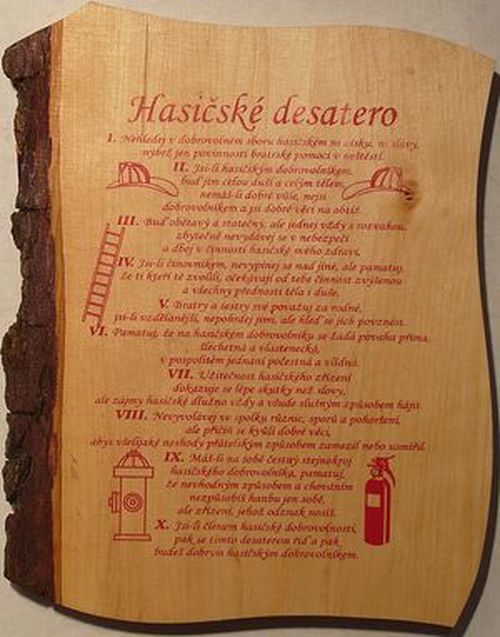 Hasičské desatero
I. Nehledej v dobrovolném sboru hasičském ni zisku, ni slávy,
nýbrž jen povinnosti bratrské pomoci v neštěstí.
II. Jsi-li hasičským dobrovolníkem,
buď jím celou duší a celým tělem,
nemáš-li dobré vůle, nejsi
dobrovolníkem a jsi dobré věci na obtíž.
III. Buď obětavý a statečný, ale jednej vždy s rozvahou,
zbytečně nevydávej se v nebezpečí
a dbej v činnosti hasičské svého zdraví.
IV. Jsi-li činovníkem, nevypínej se nad jiné, ale pamatuj,
že ti kteří tě zvolili, očekávají od tebe činnost zvýšenou
a všechny přednosti těla i duše.
V. Bratry a sestry své považuj za rodné,
jsi-li vzdělanější, nepohrdej jimi, ale hleď se jich povznést.
VI. Pamatuj, že na hasičském dobrovolníku se žádá povaha přímá,
šlechetná a vlastenecká,
v pospolitém jednání počestná a vlídná.
VII. Užitečnost hasičského zřízení
dokazuje se lépe skutky než slovy,
ale zájmy hasičské dlužno vždy a všude slušným způsobem hájit.
VIII. Nevyvolávej ve spolku různic, sporů a pohoršení,
ale přičiň se kvůli dobré věci,
abys všelijaké neshody přátelským způsobem zamezil nebo usmířil.
IX. Máš-li na sobě čestný stejnokroj
hasičského dobrovolníka, pamatuj,
že nevhodným způsobem a chováním
nezpůsobíš hanbu jen sobě,
ale zřízení, jehož odznak nosíš.
X. Jsi-li členem hasičské dobrovolnosti,
pak se tímto desaterem řiď a pak
budeš dobrým hasičským dobrovolníkem.